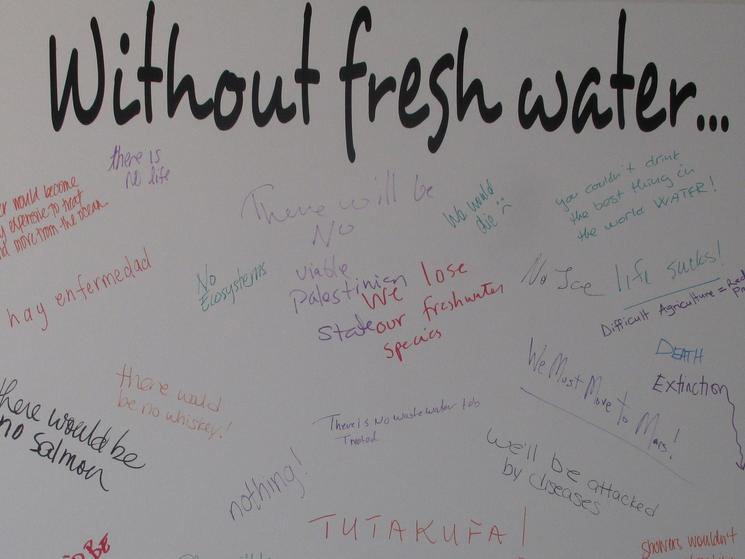 Without fresh water...
there is
No life
would become
expensive to treat
more from the ocean
There will be
No
viable
Palestinian
State
We would
die
you couldn't drink
the best thing in
the world WATER!
hay enfermedad
No
Ecosystems
We lose
our freshwater
species
No Ice
life sucks!
Difficult Agriculture =
DEATH
Extinction
We Must Move to Mars!
there would
be no whiskey!
there would be
no salmon
There is No wastewater to be
Treated
nothing!
we'll be attacked
by diseases
TUTAKUFA!
BE
showers wouldn't